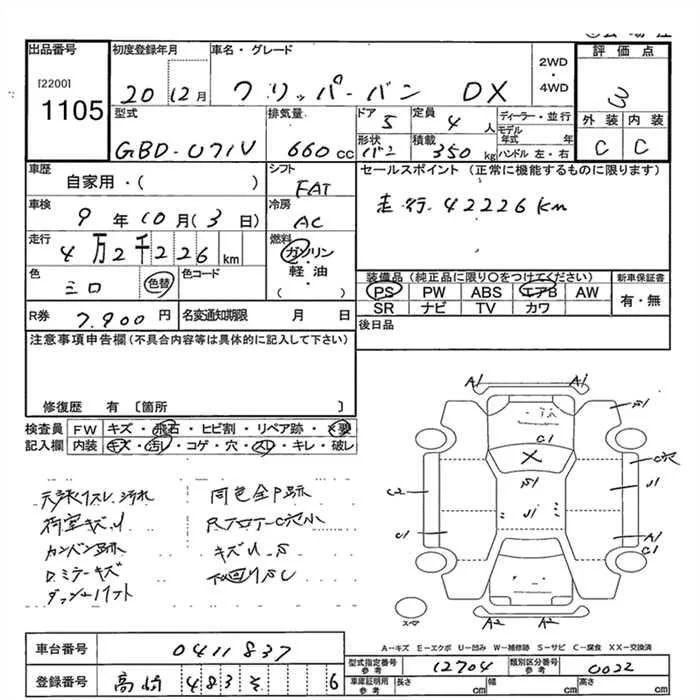 出品番号 初度登録年月 車名・グレード 2WD・4WD 評価点
[2200]
1105
20 12月 クリッパーバン DX 3
型式 排気量 ドア 定員 ディーラー・並行 外装 内装
GBD-U71V 660cc 5 4人 モデル年式 年 C C
形状 積載 ハンドル 左・右
バン 350kg
車歴 シフト セールスポイント (正常に機能するものに限ります)
自家用・( ) FAT
車検 冷房 走行 42226km
9年10月(3日) AC
走行 燃料
4万2千226km ガソリン・軽油・( )
色 色替 色コード 装備品(純正品に限り○をつけてください) 新車保証書
シロ PS PW ABS エアB AW 有・無
SR ナビ TV カワ
R券 7.900円 名変通知期限 月 日 後日品
注意事項申告欄(不具合内容等は具体的に記入して下さい)
修復歴 有 〔箇所 〕
検査員記入欄 FW キズ・飛石・ヒビ割・リペア跡・×要
内装 キズ・汚レ・コゲ・穴・スレ・キレ・破レ
天張リスレ、汚れ 同色全P跡
荷室キズU
カンバン跡 キズU.S
D.ミラーキズ 下回りS
A1 A1
S1
C1
X
C穴
S1 U1
C2
U1
C1 A1
C1
スペア A2 A2
A-キズ E-エクボ U-凹み W-補修跡 S-サビ C-腐食 XX-交換済
車台番号 0411837 型式指定番号 参考 12704 類別区分番号 参考 0022
登録番号 高崎 483 そ 6 車庫証明用 参考 長さ cm 幅 cm 高さ cm